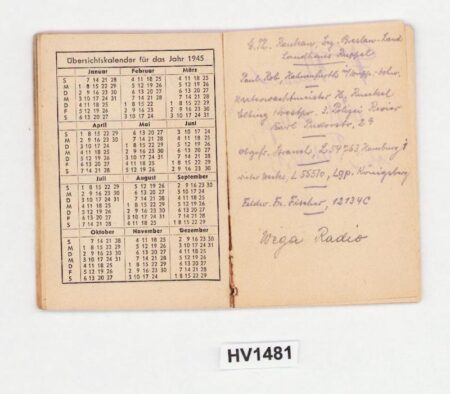 Übersichtskalender für das Jahr 1945
Januar Februar März
S 7 14 21 28 4 11 18 25 4 11 18 25
M 1 8 15 22 29 5 12 19 26 5 12 19 26
D 2 9 16 23 30 6 13 20 27 6 13 20 27
M 3 10 17 24 31 7 14 21 28 7 14 21 28
D 4 11 18 25 1 8 15 22 1 8 15 22 29
F 5 12 19 26 2 9 16 23 2 9 16 23 30
S 6 13 20 27 3 10 17 24 3 10 17 24 31
April Mai Juni
S 1 8 15 22 29 6 13 20 27 3 10 17 24
M 2 9 16 23 30 7 14 21 28 4 11 18 25
D 3 10 17 24 1 8 15 22 29 5 12 19 26
M 4 11 18 25 2 9 16 23 30 6 13 20 27
D 5 12 19 26 3 10 17 24 31 7 14 21 28
F 6 13 20 27 4 11 18 25 1 8 15 22 29
S 7 14 21 28 5 12 19 26 2 9 16 23 30
Juli August September
S 1 8 15 22 29 5 12 19 26 2 9 16 23 30
M 2 9 16 23 30 6 13 20 27 3 10 17 24
D 3 10 17 24 31 7 14 21 28 4 11 18 25
M 4 11 18 25 1 8 15 22 29 5 12 19 26
D 5 12 19 26 2 9 16 23 30 6 13 20 27
F 6 13 20 27 3 10 17 24 31 7 14 21 28
S 7 14 21 28 4 11 18 25 1 8 15 22 29
Oktober November Dezember
S 7 14 21 28 4 11 18 25 2 9 16 23 30
M 1 8 15 22 29 5 12 19 26 3 10 17 24 31
D 2 9 16 23 30 6 13 20 27 4 11 18 25
M 3 10 17 24 31 7 14 21 28 5 12 19 26
D 4 11 18 25 1 8 15 22 29 6 13 20 27
F 5 12 19 26 2 9 16 23 30 7 14 21 28
S 6 13 20 27 3 10 17 24 1 8 15 22 29
Breslau-Land
Landhaus
Paul
Elbing 3. Polizei Revier
29
Hamburg 1
Königsberg
Feldw. Fr. Fischer, 12134C
Wega Radio
HV1481